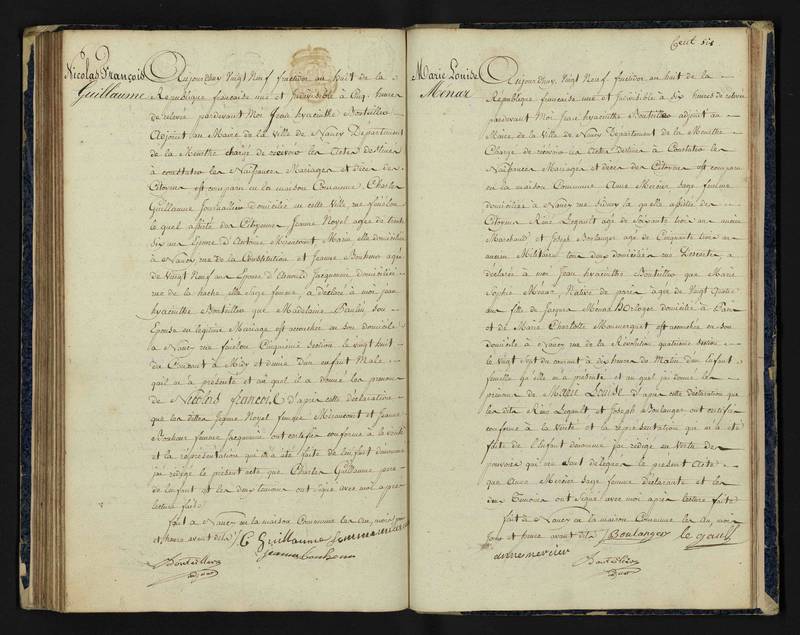 Nicolas François
Guillaume
Aujourdhuy Vingt Neuf fructidor an huit de la
République française une et Indivisible à Cinq heures
de relevée pardevant Moi Jean hyacinthe Bouteillier
Adjoint au Maire de la Ville de Nancy Departement
de la Meurthe chargé de recevoir les Actes destinés
à constater les Naissances Mariages et décès des
Citoyens est comparu en la maison Commune Charles
Guillaume Journallier Domicilié en cette Ville rue fénélon
le quel assisté des Citoyennes Jeanne Noyel agée de trente
six ans Epouse d'Antoine Miraucourt Marin elle domiciliée
à Nancy rue de la Constitution et Jeanne Bonheur agée
de Vingt Neuf ans Epouse d'Arnould Jacquemin domiciliée
rue de la hache elle Sage femme, a déclaré à moi Jean
hyacinthe Bouteillier que Madelaine Paulin son
Epouse en légitime Mariage est accouchée en son domicile
à Nancy rue fénélon Cinquième section le vingt huit
du Courant à Midy et demie d'un enfant Male
qu'il m'a présenté et au quel il a donné les prenoms
de Nicolas François, d'après cette déclaration
que les dittes Jeanne Noyel femme Miraucourt et Jeanne
Bonheur femme Jacquemin ont certifiée conforme à la verité
et la représentation qui m'a été faite de l'enfant denommé
j'ai rédigé le présent acte que Charles Guillaume pere
de l'enfant et les deux temoins ont signé avec moi après
lecture faite
fait à Nancy en la maison Commune les an, mois jour
et heure avant dits / C Guillaume
jeanne bonheur
Bouteillier
adjoint
Cent six
Marie Louise
Menar
Aujourdhuy Vingt Neuf fructidor an huit de la
République française une et Indivisible à six heures de relevée
pardevant Moi Jean hyacinthe Bouteillier adjoint au
Maire de la Ville de Nancy Departement de la Meurthe
Chargé de recevoir les Actes destinés à Constater les
Naissances Mariages et décès des Citoyens est comparu
en la maison Commune Anne Mercier sage femme
domiciliée à Nancy rue la quelle assistée des
Citoyens Réné Legault agé de Soixante trois ans ancien
Marechand et Joseph Boulanger agé de Cinquante trois ans
ancien Militaire tous deux domiciliés rue Descartes, a
déclaré à moi Jean hyacinthe Bouteillier que Marie
Sophie Ménar Native de paris agée de Vingt Quatre
ans fille de Jacques Ménar Horloger domicilié à Paris
et de Marie Charlotte est accouchée en son
domicile à Nancy rue de la Révolution quatrieme section
le vingt Sept du courant à dix heures du Matin d'un Enfant
femelle qu'elle m'a présenté et au quel j'ai donné les
prenoms de Marie Louise d'après cette déclaration que
les dits Réné Legault et Joseph Boulanger ont certifiée
conforme à la Verité et la représentation qui m'a été
faite de l'Enfant denommé j'ai redigé en Vertu des
pouvoirs qui me sont delegués le présent Acte
que Anne Mercier sage femme déclarante et les
deux Temoins ont Signé avec moi après lecture faite
fait à Nancy en la maison Commune les an, mois
Jour et heure avant dits J Boulanger le gault
anne mercier
Bouteillier
adjoint